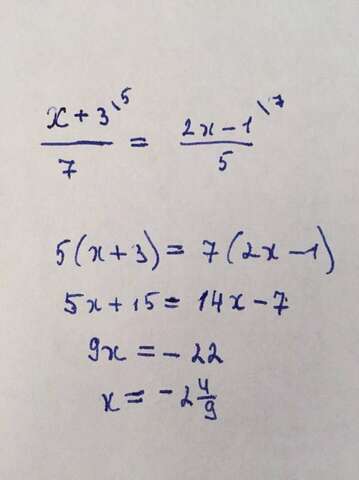 x + 3\5 / 7 = 2x - 1\7 / 5
5(x + 3) = 7(2x - 1)
5x + 15 = 14x - 7
9x = - 22
x = - 2 4/9